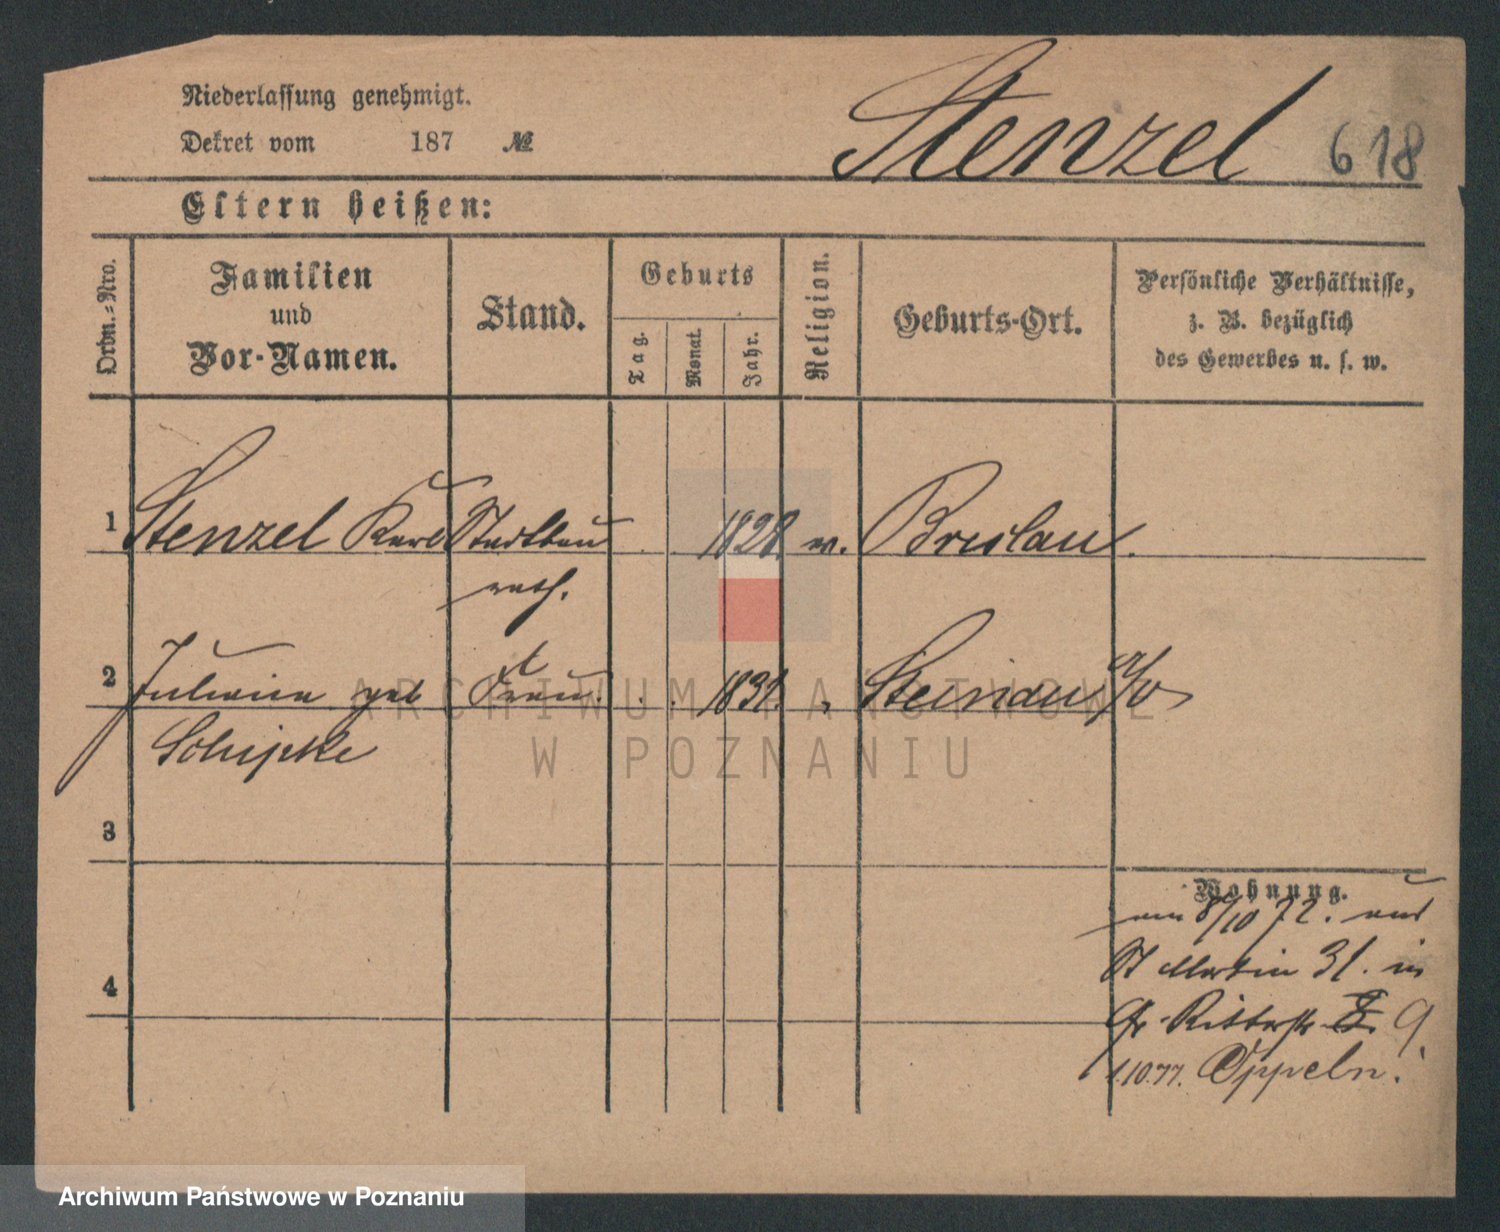 Niederlassung genehmigt.
Dekret vom 187 №
Stenzel 618
Eltern heißen:
Ordn.-Nro.
Familien
und
Vor-Namen.
Stand.
Geburts
Tag.
Monat.
Jahr.
Religion.
Geburts-Ort.
Persönliche Verhältnisse,
z. B. bezüglich
des Gewerbes u. s. w.
1 Stenzel Karl Stadtbau 1828. ev. Breslau.
rath.
2 geb Frau. Steinau a/O
3
Wohnung.
am 8/10 72. aus
St Martin 31. in
4
Gr. Ritterstr. 9
1.10.77. Oppeln.
ARCHIWUM PAŃSTWOWE
W POZNANIU
Archiwum Państwowe w Poznaniu